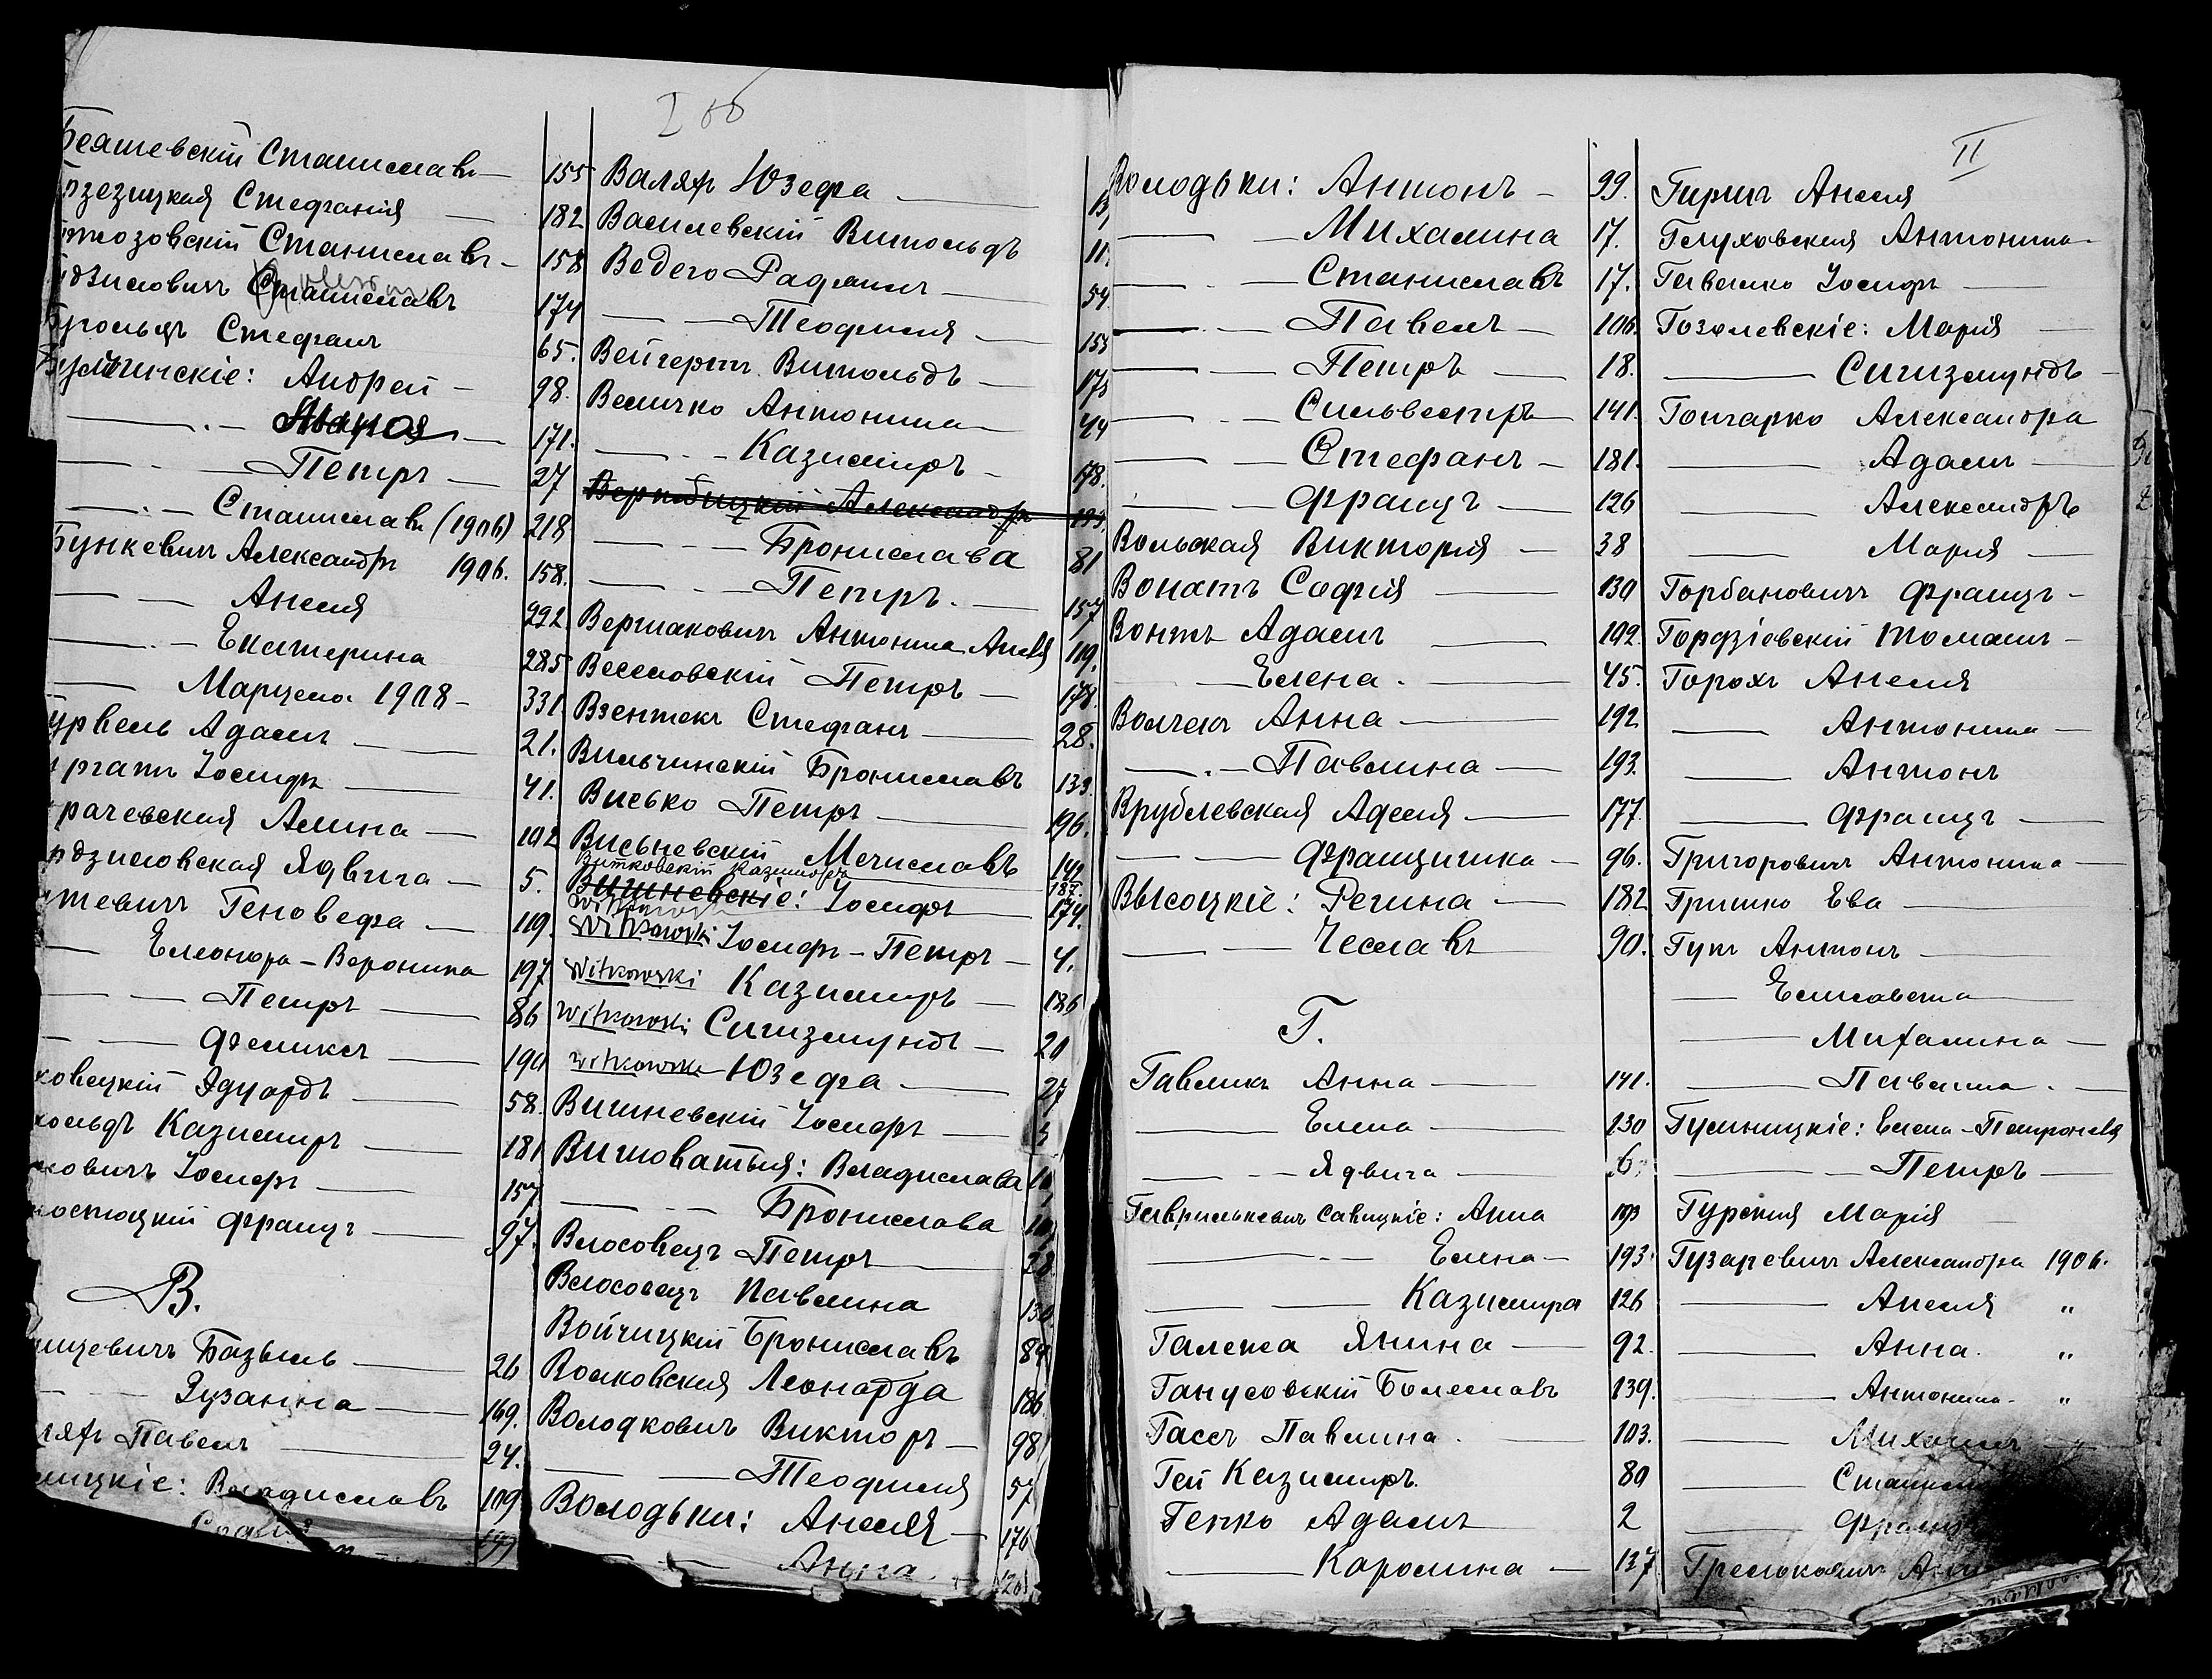 Станиславъ — 155
Стефанія — 182
Станиславъ — 158
Станиславъ 174
Стефанъ 65.
Андрей — 98.
— . — 171.
— . — Петръ — 27
— . — Станиславъ (1906) 218
Бункевичъ Александръ 1906. 158.
— — Анеля 292
— . — Екатерина 285
— Марцела 1908 — 331
Адамъ — 21.
Іосифъ — 41.
Алина — 102
Ядвига — 5.
Геновефа — 119.
— Елеонора - Вероника 197
— — Петръ — 86
— — Феликсъ — 190
Эдуардъ — 58.
Казимиръ — 181
Іосифъ — 157
Францъ — 97.
В.
Базыль — 26
— — Зузанна — 169.
Павелъ — 24.
Владиславъ 109
Софія
I
Валяхъ Юзефа —
Василевскій Витольдъ 11
Ведего Рафаилъ — 54
— — Теофиля — 155
Вейгертъ Витольдъ — 175
Величко Антонина — 44
— . — Казимиръ — 178.
Вербицкій Александръ 193.
— — Бронислава 81
— . — Петръ. — 157
Вершаковичъ Антонина Анеля 119.
Веселовскій Петръ — 178.
Взентекъ Стефанъ — 28.
Вильчинскій Брониславъ 139.
Висько Петръ — 196.
Висьневскій Мечиславъ 149
Витковскій Казимиръ 187.
Вишневскіе: Іосифъ — 174.
Witkowski Іосифъ - Петръ — 4.
Witkowski Казимиръ — 186
Witkowski Сигизмундъ — 20
Witkowska Юзефа — 27
Вишневскій Іосифъ — 5
Вишоватыя: Владислава
— — Бронислава
Влосовецъ Петръ — 28
Влосовецъ Павлина 130.
Войчицкій Брониславъ 89
Волковская Леонарда 186
Володковичъ Викторъ — 98
— — Теофиля 57
Володьки: Анеля — 176
— — Анна. — 120
Володьки: Антонъ — 99.
— — Михалина 17.
— . — Станиславъ 17.
— . — Павелъ — 106.
— — Петръ — 18.
— . — Сильвестръ 141.
— — Стефанъ — 181.
— — Францъ — 126
Вольская Викторія — 38
Вонатъ Софія — 130
Вонтъ Адамъ — 192.
— Елена. — 45.
Волчекъ Анна — 192
— . — Павлина — 193.
Врублевская Аделя — 177.
— — Францишка — 96.
Высоцкіе: Регина — 182
— — Чеславъ 90.
Г.
Гавликъ Анна — 141.
— Елена — 130
— — Ядвига — 6.
Гаврилькевичъ Савицкіе: Анна 193
— — Елена — 193.
— — Казимира 126
Галенса Янина — 92.
Ганусовскій Болеславъ 139.
Гассъ Павлина. — 103.
Гей Казимиръ. 80
Гепко Адамъ 2
— Каролина — 137
II
Гиринъ Анеля
Глуховская Антонина —
Гавелко Іосифъ —
Гозалевскіе: Марія —
— Сигизмундъ —
Гончарко Александра
— Адамъ —
— Александръ
— Марія —
Горбановичъ Францъ —
Гордзіевскій Томашъ —
Горохъ Анеля
— Антонина —
— Антонъ
— Францъ —
Григоровичъ Антонина —
Гришко Ева —
Гукъ Антонъ —
— Елисавета —
— Михалина —
— Павлина. —
Гульницкіе: Елена - Петронеля
— — Петръ —
Гурская Марія
Гузаревичъ Александра 1906.
— Анеля "
— Анна. "
— Антонина. "
— Михаилъ
—
— Францъ